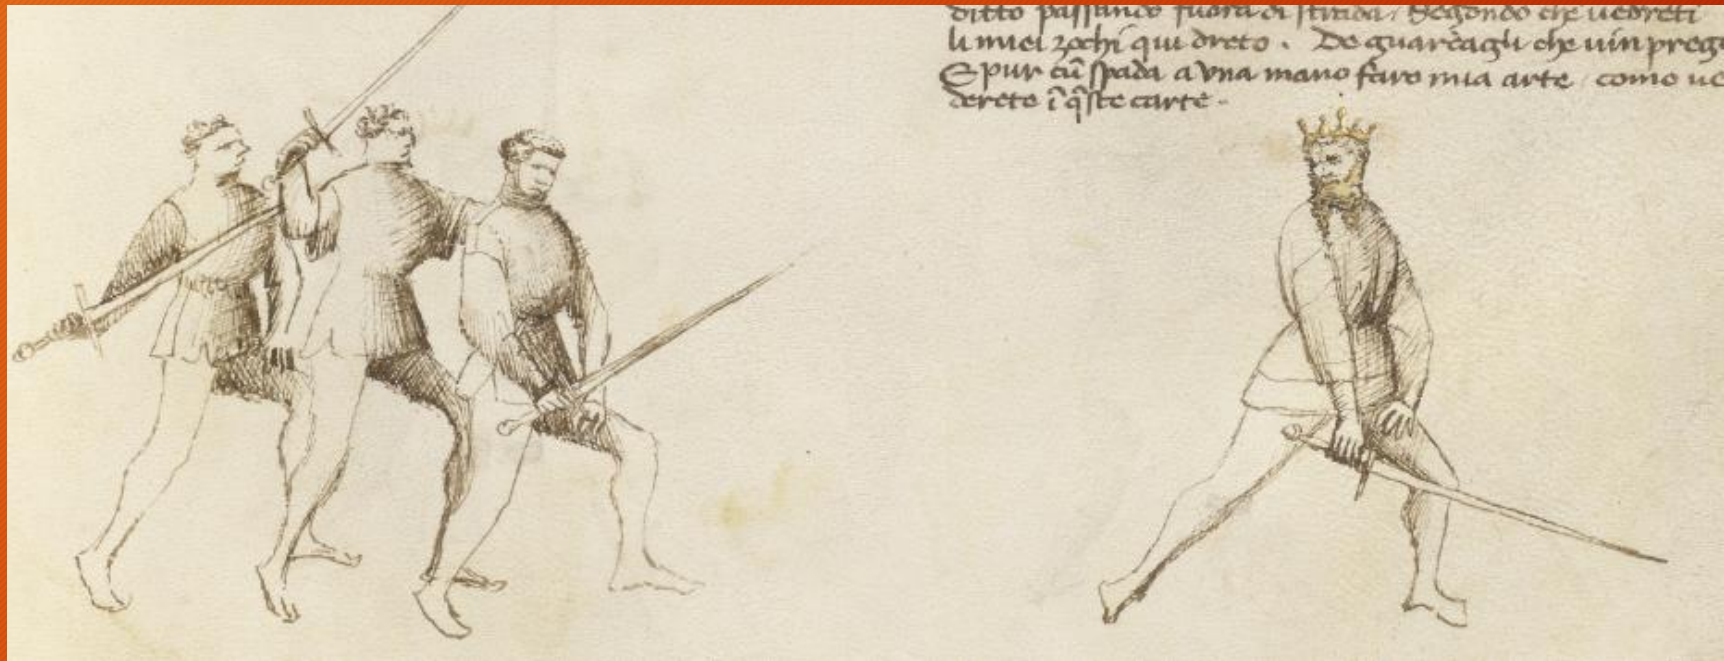 ditto passando fuora di strada. Segondo che vedreti
li miei zochi qui dreto. De guardagli che vin preg
E pur cu̅ spada a una mano faro mia arte como ve
derete i̅ q̅ste carte.